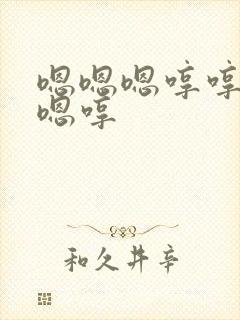 嗯嗯嗯哼哼
嗯哼
和久井辛